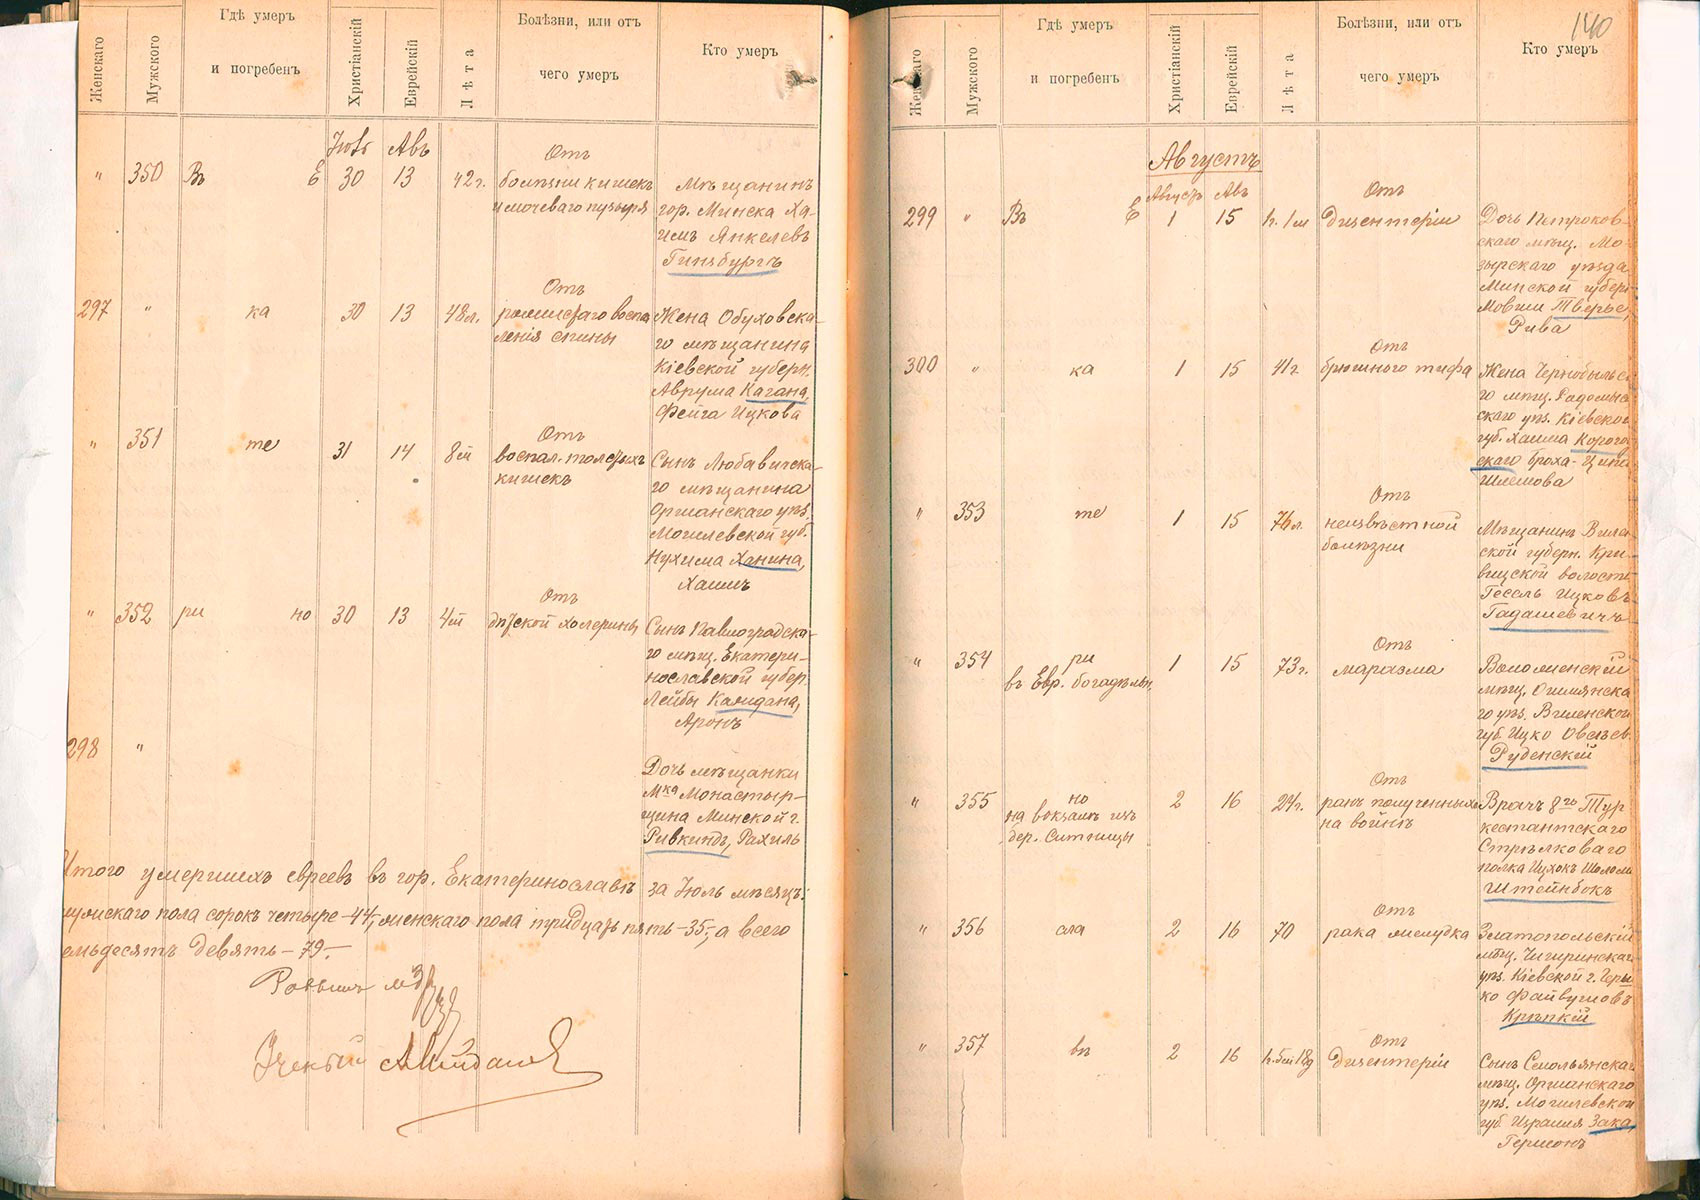 Женскаго
Мужского
Гдѣ умеръ
и погребенъ
Христіанскій
Еврейскій
Лѣта
Болѣзни, или отъ
чего умеръ
Кто умеръ
Іюль Авъ
" 350 Въ Е 30 13 42 г.
Отъ
болѣзни кишекъ
и мочеваго пузыря
Мѣщанинъ
гор. Минска Ха-
имъ Янкелевъ
Гинзбургъ
297 " ка 30 13 48 л.
Отъ
воспа-
ленія спины
Жена Обуховска-
го мѣщанина
Кіевской губерн.
Аврума Кагана,
Фейга Ицкова
" 351 те 31 14 8 м
Отъ
воспал. толстыхъ
кишекъ
Сынъ Любавичска-
го мѣщанина
Оршанскаго уѣз.
Могилевской губ.
Нухима Ханина,
Хаимъ
" 352 ри но 30 13 4 м
Отъ
дѣтской холерины
Сынъ Павлоградска-
го мѣщ. Екатери-
нославской губер.
Лейбы Каидана,
Аронъ
298 "
Дочь мѣщанки
М-ка Монастыр-
щина Минской г.
Ривкиндъ, Рахиль
Итого умершихъ евреевъ въ гор. Екатеринославѣ за Іюль мѣсяцъ:
мужскаго пола сорокъ четыре -44-, женскаго пола тридцать пять -35-, а всего
семьдесятъ девять -79-
Раввинъ
Ученый
140
Женскаго
Мужского
Гдѣ умеръ
и погребенъ
Христіанскій
Еврейскій
Лѣта
Болѣзни, или отъ
чего умеръ
Кто умеръ
Августъ
Августъ Авъ
299 " Въ Е 1 15 1 м
Отъ
дизентеріи
Дочь Петроков-
скаго мѣщ. Мо-
зырскаго уѣзда
Минской губер.
Мовши Тверье,
Рива
300 " ка 1 15 41 г.
Отъ
брюшного тифа
Жена Чернобыльска-
го мѣщ. Радомысль-
скаго уѣз. Кіевской
губ. Хаима Корого-
скаго Броха-Ципа
Шлемова
" 353 те 1 15 76 л.
Отъ
неизвѣстной
болѣзни
Мѣщанинъ Вилен-
ской губерн. Кри-
вицской волости
Гесель Ицковъ
Гадашевичъ
" 354 ри
въ Евр. богадѣльн. 1 15 73 г.
Отъ
маразма
Воложенскій
мѣщ. Ошмянска-
го уѣз. Виленской
губ. Ицко Овсѣев.
Руденскій
" 355 но
на вокзалѣ изъ
дер. Ситницы 2 16 24 г.
Отъ
ранъ полученныхъ
на войнѣ
Врачъ 8го Тур-
кестантскаго
Стрѣлковаго
полка Ицхокъ Шолом.
Штейнбокъ
" 356 сла 2 16 70
Отъ
рака желудка
Златопольскій
мѣщ. Чигиринскаго
уѣз. Кіевской г. Герш-
ко Файвушовъ
Крѣпкій
" 357 вѣ 2 16 5 м 18 д
Отъ
дизентеріи
Сынъ Смольянскаг.
мѣщ. Оршанскаго
уѣз. Могилевской
губ. Израиля Зака,
Гершонъ